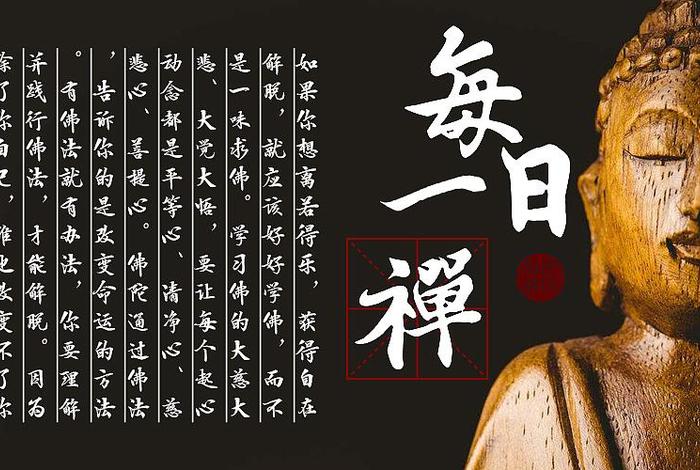 每日
一
禪
如果你想离苦得乐，获得自在
解脱，就应该好好学佛，而不
是一味求佛。学习佛的大慈大
悲、大觉大悟，要让每个起心
动念都是平等心、清净心、慈
悲心、菩提心。佛陀通过佛法
，告诉你的是改变命运的方法
。有佛法就有办法，你要理解
并践行佛法，才能解脱。因为
除了你自己，谁也改变不了你